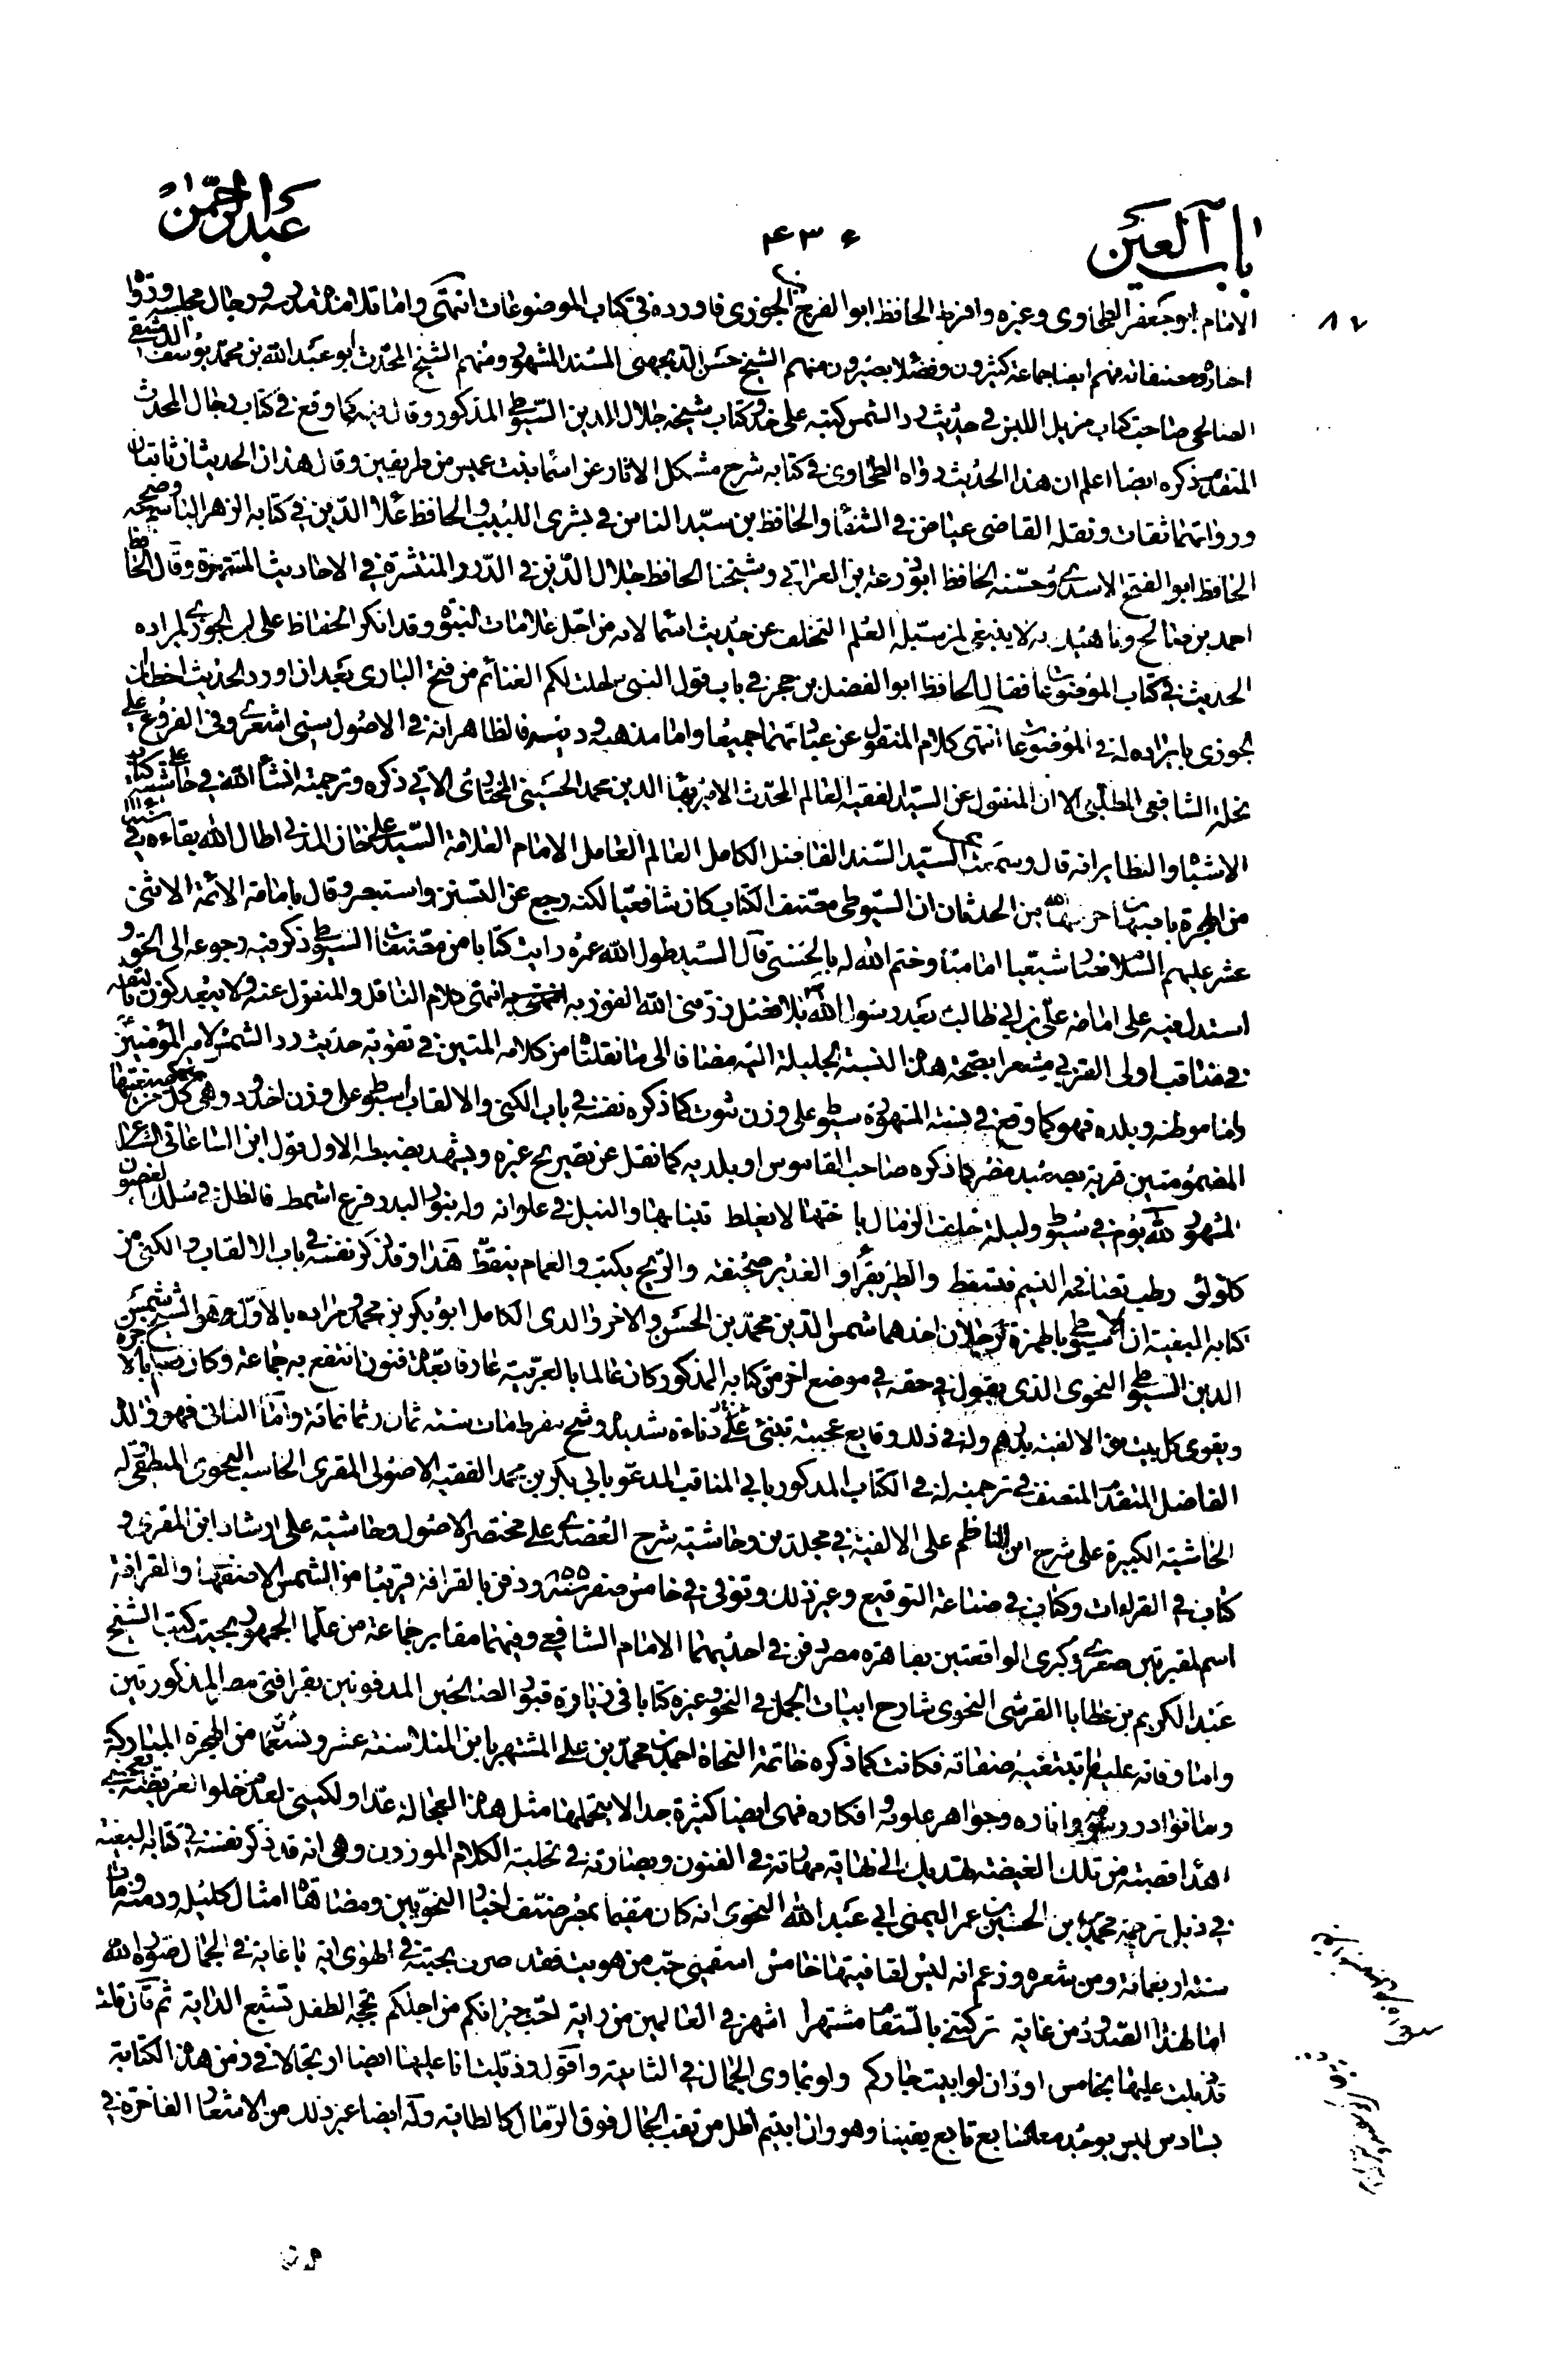 باب العين
۴۳۶
عبد الرحمن
الامام ابو جعفر الطحاوى وغيره وافرط الحافظ ابو الفرج بن الجوزى فاورده فى كتاب الموضوعات انتهى واما تلامذة مدرسه ورجال مجلسه ورواة
اخباره ومصنفاته فهم ايضا جماعة كثيرون وفضلا بصيرون منهم الشيخ حسن المسند المشهور ومنهم الشيخ المحدث ابو عبد الله بن محمد يوسف الدمشقى
الصالحى صاحب كتاب مزيل اللبس فى حديث رد الشمس كتبه على حذو كتاب شيخه جلال الدين السيوطى المذكور وقال فيه كما وقع فى كتاب رجال المحدث
المتقدم ذكره ايضا اعلم ان هذا الحديث رواه الطحاوى فى كتابه شرح مشكل الاثار عن اسماء بنت عميس من طريقين وقال هذان الحديثان ثابتان
ورواتهما ثقات ونقله القاضى عياض فى الشفا والحافظ بن سيد الناس فى بشرى اللبيب والحافظ علاء الدين فى كتابه الزهر الباسم وصححه
الحافظ ابو الفتح الاسدى وحسنه الحافظ ابو زرعة بن العراقى وشيخنا الحافظ جلال الدين فى الدرر المنتثرة فى الاحاديث المشتهرة وقال الحافظ
احمد بن صالح وناهيك به لا ينبغى لمن سبيله العلم التخلف عن حديث اسما لانه من اجل علامات النبوة وقد انكر الحفاظ على ابن الجوزى ايراده
الحديث فى كتاب الموضوعات فقال الحافظ ابو الفضل بن حجر فى باب قول النبى احلت لكم الغنائم من فتح البارى بعد ان اورد الحديث اخطا ابن
الجوزى بايراده له فى الموضوعات انتهى كلام المنقول عن عباراتهما جميعا واما مذهبه ودينه فالظاهر انه فى الاصول سنى اشعرى وفى الفروع على
نحلة الشافعى المطلبى الا ان المنقول عن السيد الفقيه العالم المحدث الامير بهاء الدين محمد الحسينى المختارى الاتى ذكره وترجمته انشاء الله فى حاشيته على كتاب
الاشباه والنظاير انه قال وسمعت السيد السند الفاضل الكامل العالم العامل الامام العلامة السيد على خان المدنى اطال الله بقاءه فى
من الهجرة من الحدثان ان السيوطى مصنف الكتاب كان شافعيا لكنه رجع عن التسنن واستبصر وقال بامامة الائمة الاثنى
عشر عليهم السلام فصار شيعيا اماميا وختم الله له بالحسنى قال السيد طول الله عمره رايت كتابا من مصنفات السيوطى ذكر فيه رجوعه الى الحق و
استدل فيه على امامة على بن ابى طالب بعد رسول الله بلا فصل رزقنى الله الفوز به انتهى كلام الناقل والمنقول عنه ولا يبعد كون
فى مناقب اولى القربى مشعرا بصحة هذه النسبة الجليلة اليه مضافا الى ما نقلناه من كلامه المتين فى تقوية حديث رد الشمس لامير المؤمنين
واما موطنه وبلده فهو كما وقع فى نسبته المشهورة سيوط على وزن ثبوت كما ذكره نفسه فى باب الكنى والالقاب اسيوط على وزن اخدود وهى كل
المضمومتين قرية بصعيد مصر كما ذكره صاحب القاموس او بلد به كما نقل عن تصريح غيره ويشهد بضبطه الاول قول ابن الساعاتى الشاعر
المشهور لله يوم فى سيوط وليلة حلف الزمال باختها لا يغلط بتنا بها والنيل فى علوانه وله بنور البدر فرع اشمط فالطل فى سلك الغصون
كلؤلؤ رطب تصافحه النسيم فتسقط والطير يقرا والغدير صحيفة والريح يكتب والغمام ينقط هذا وقد ذكر نفسه فى باب الالقاب والكنى من
كتابه البغية ان الاسيوطى بالهمزة رجلان احدهما شمس الدين محمد بن الحسن والاخر والدى الكامل ابو بكر بن محمد ومراده بالاول هو الشيخ شمس
الدين السيوطى النحوى الذى يقول فى حقه فى موضع اخر من كتابه المذكور كان عالما بالعربية عارفا بعدة فنون انتفع به جماعة وكان
ويقوى كل بيت من الالفية بدرهم وله فى ذلك وقايع عجيبة تبنى على دناءة شديدة وشح مفرط مات سنه ثمان وثمانمائة واما الثانى فهو والد
الفاضل المتقدم المتصنف فى ترجمته له فى الكتاب المذكور بابى المناقب المدعو بابى بكر بن محمد الفقيه الاصولى المقرى الحاسب النحوى المنطقى له
الحاشية الكبيرة على شرح ابن الناظم على الالفية فى مجلدين وحاشية شرح العضدى على مختصر الاصول وحاشية على ارشاد ابن المقرى و
كتاب فى القراءات وكتاب فى صناعة التوقيع وغير ذلك وتوفى فى خامس صفر سنة ٨٥٥ ودفن بالقرافة قريبا من الشمس الاصفهانى والقرافة
اسم لمقبرتين صغرى وكبرى الواقعتين بقاهرة مصر دفن فى احديهما الامام الشافعى وفيهما مقابر جماعة من علما الجمهور بحيث كتب الشيخ
عبد الكريم بن عطايا القرشى النحوى شارح ابيات الجمل فى النحو وغيره كتابا فى زيارة قبور الصالحين المدفونين بقرافتى مصر المذكورتين
واما وفاته فكانت كما ذكره خاتمة النحاة احمد بن محمد بن على المشتهر بابن الملا سنه عشر وتسعمائة من الهجرة المباركة
وما نوادر رسومه واثاره وجواهر علومه وافكاره فهى ايضا كثيرة جدا لا يتحملها مثل هذه العجالة عدا ولكنى لعدم خلوا
فى ذيل ترجمة محمد بن الحسين بن عمر اليمنى ابى عبد الله النحوى انه كان مقيما بمصر صنف اخبار النحويين ومضاهاة امثال كليله ودمنه ومات
سنه اربعمائة ومن شعره وزعم انه ليس لقافيتها خامس اسقمنى حب من هويت فقد صرت بحبيه فى الهوى اية يا غاية فى الجمال صوره الله
اما لهذا الصدود من غاية تركتنى بالسقام مشتهرا اشهر فى العالمين من راية احب جيرانكم من اجلكم بحجة الطفل تشبع الداية ثم قال قلت
قد ذيلت عليها بخامس اوزان لوابيت جاركم ولو نماوى الجمال فى الثامة واقول وذيلت انا عليها ايضا ارتجالا فى زمن هذه الكتابة
بسادس ليس يوجد معه سابع تابع يقينا وهو وان ابيتم اظل من تعب الجمال فوق الرمال كالطاية وله ايضا غير ذلك من الاشعار الفاخرة فى